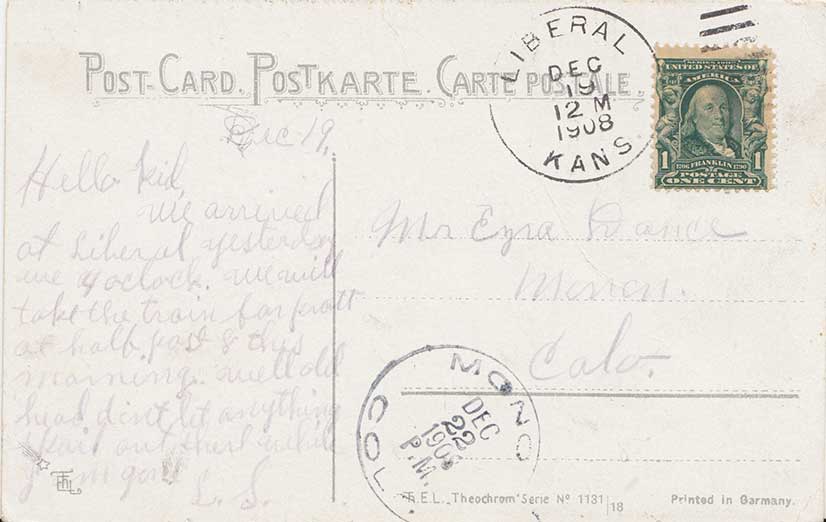 POST-CARD. POSTKARTE. CARTE POSTALE.
LIBERAL
DEC
19
12 M
1908
KANS.
SERIES 1902
UNITED STATES OF
AMERICA
1
1706 FRANKLIN 1790
1
POSTAGE
ONE CENT
Dec 19,
Hello kid,
we arrived
at Liberal yesterday
eve 4 oclock. we will
take the train for pratt
at half past 8 this
morning. well old
head dont let anything
out there while
I am gone
L. S.
Mr Ezra
Colo.
MONO
DEC
22
1908
P.M.
COL.
T.E.L. "Theochrom" Serie Nº 1131
18
Printed in Germany.